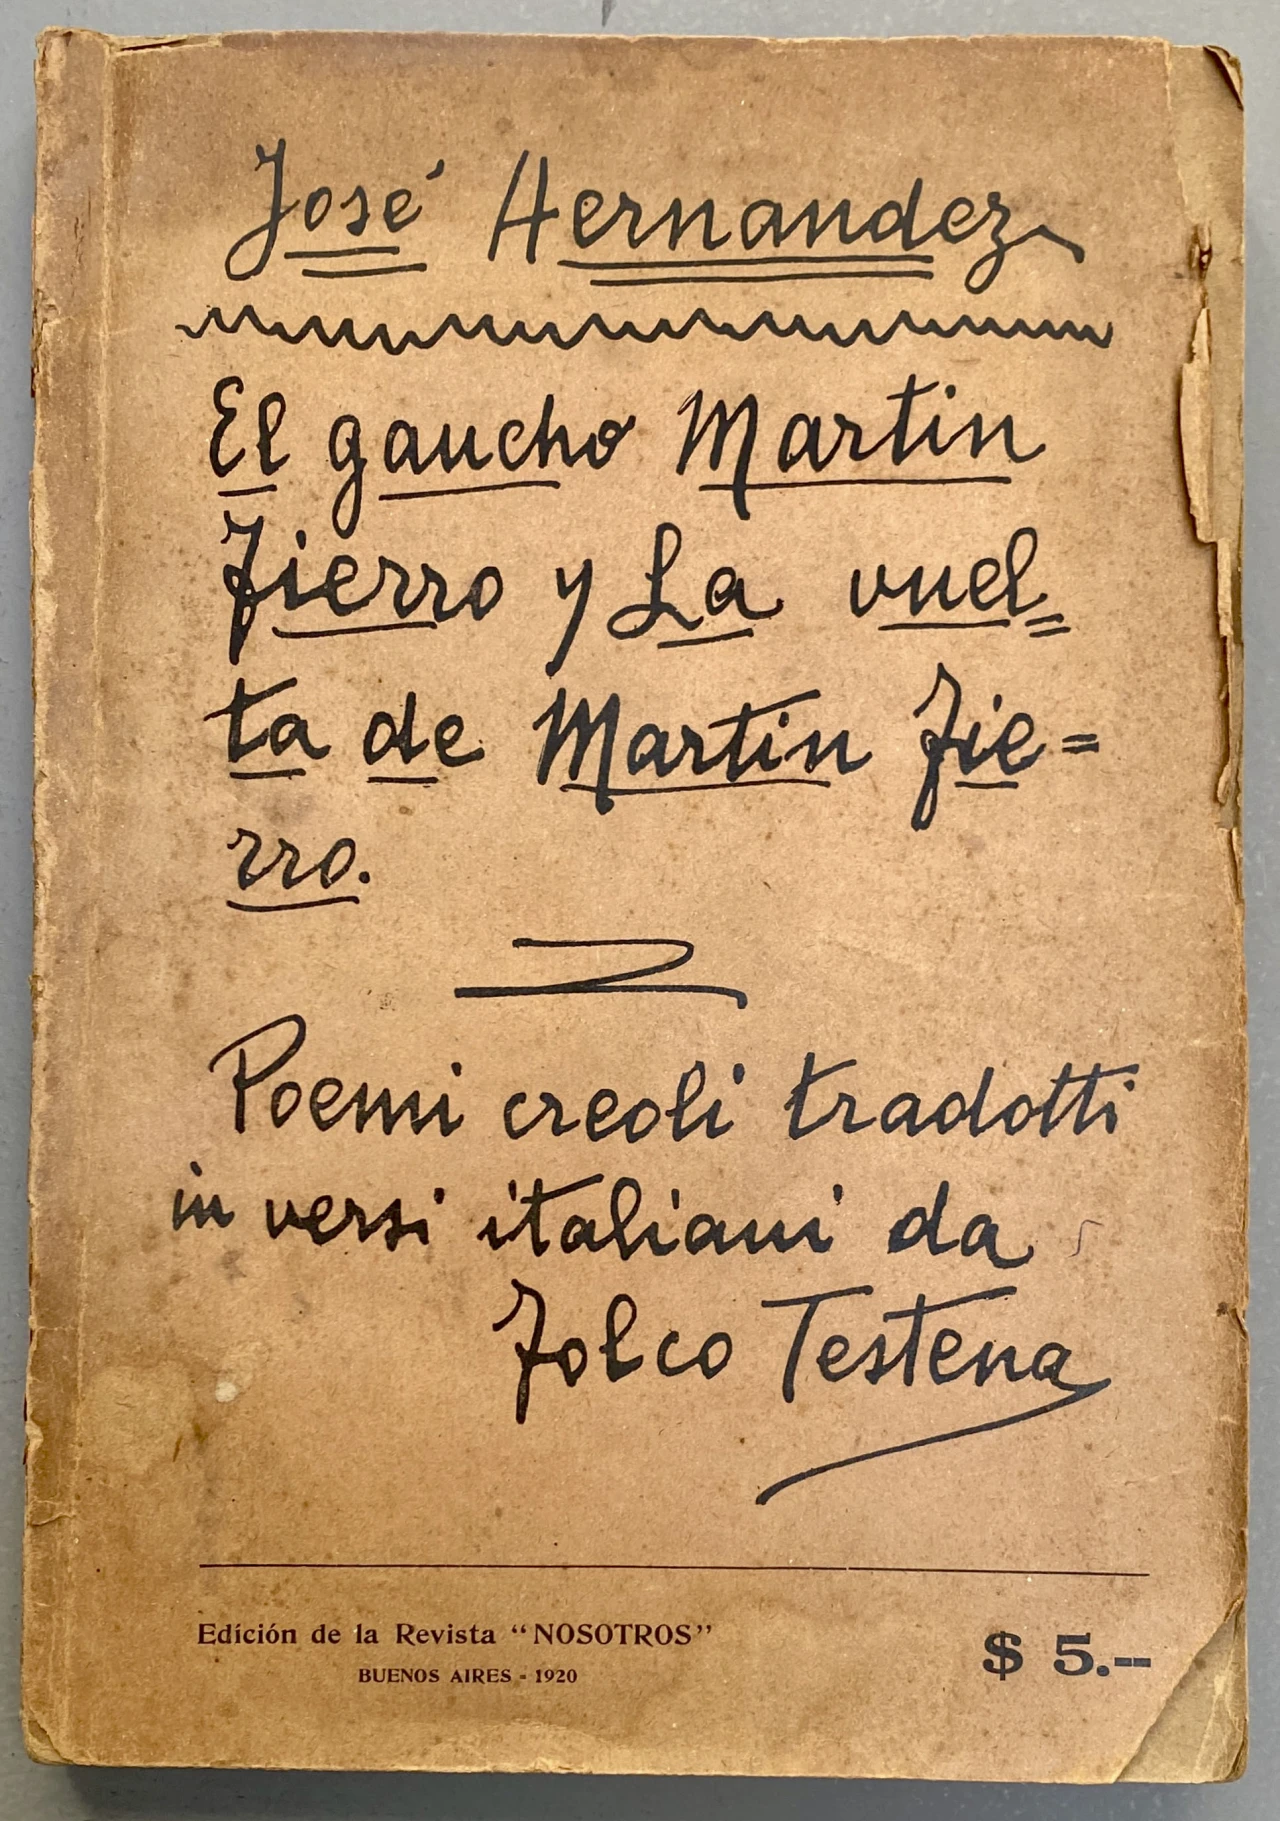 José Hernandez
El gaucho Martin
Fierro y La vuel=
ta de Martin Fie=
rro.
Poemi creoli tradotti
in versi italiani da
Folco Testena
Edición de la Revista “NOSOTROS”
BUENOS AIRES - 1920
$ 5.--